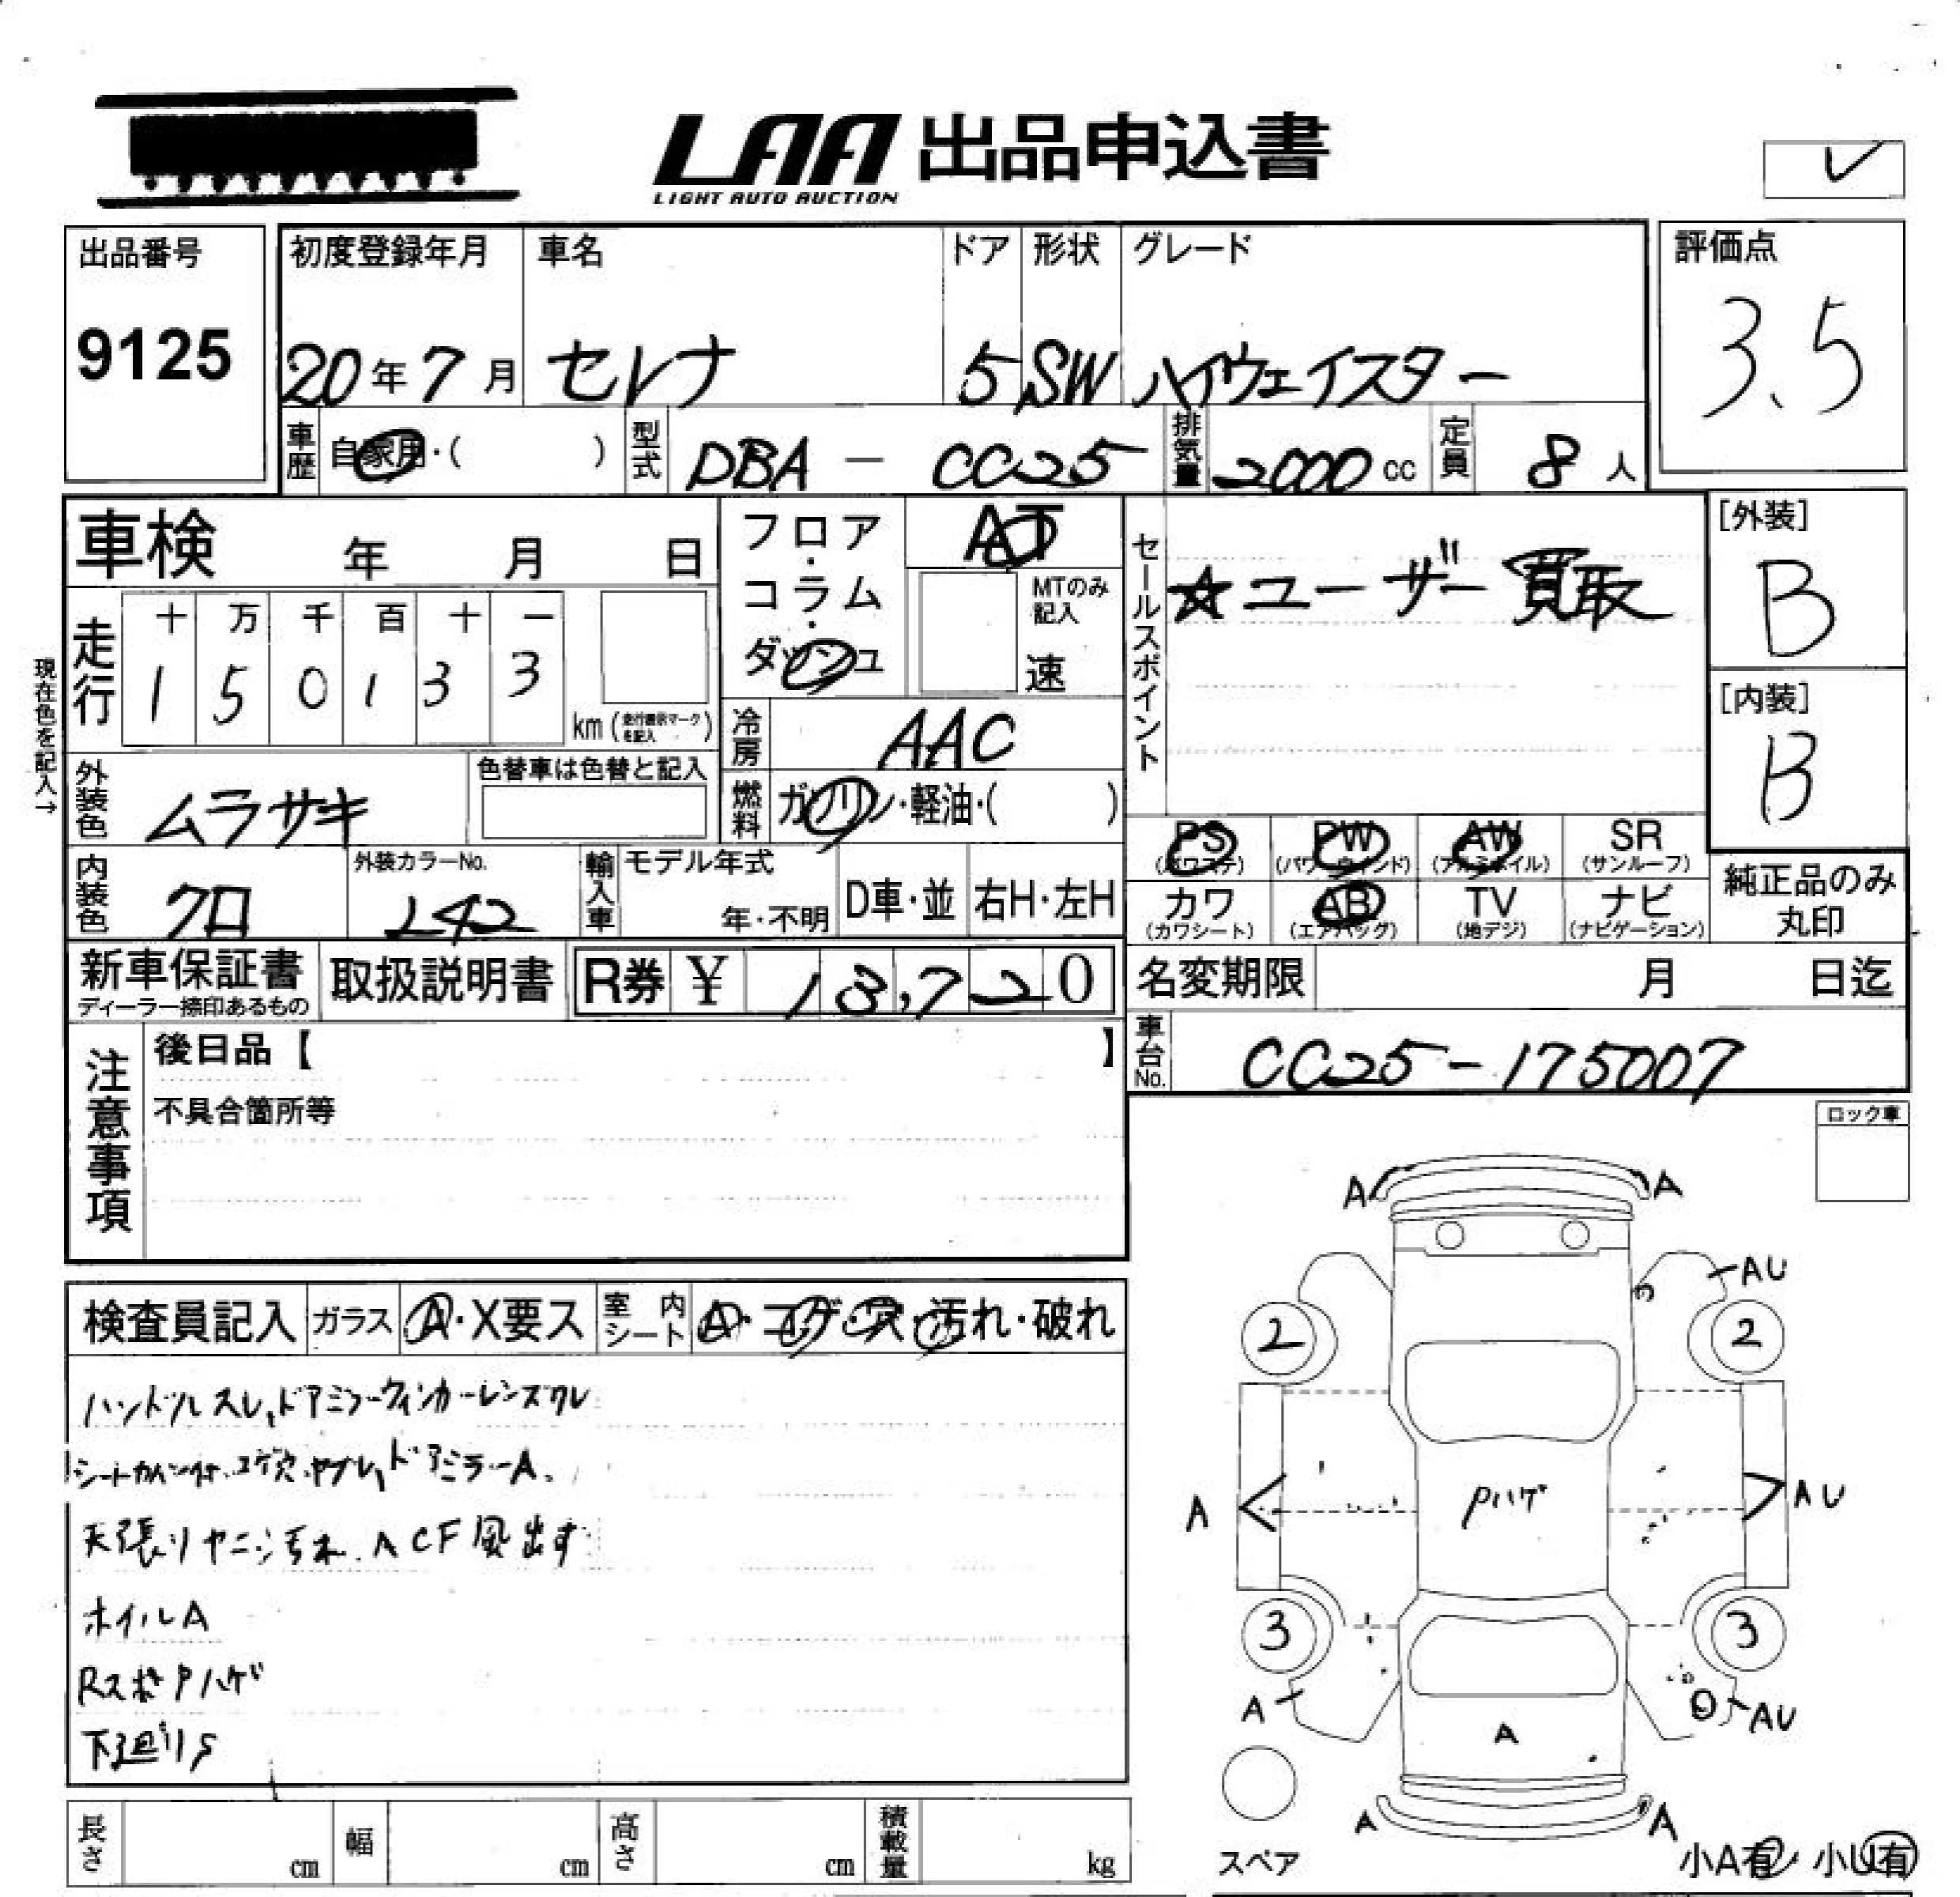 LAA 出品申込書
LIGHT AUTO AUCTION
レ
出品番号
9125
初度登録年月 車名 ドア 形状 グレード
20年7月 セレナ 5 SW ハイウェイスター
評価点
3.5
車歴 自家用・( ) 型式 DBA - CC25 排気量 2000cc 定員 8人
車検 年 月 日
走行 十 万 千 百 十 一
1 5 0 1 3 3
km (走行表示マークを記入)
現在色を記入→
外装色 ムラサキ 色替車は色替と記入
内装色 クロ 外装カラーNo. L42
輸入車 モデル年式 年・不明 D車・並 右H・左H
フロア・コラム・ダッシュ
AT
MTのみ記入
速
冷房 AAC
燃料 ガソリン・軽油・( )
セールスポイント
☆ユーザー買取
[外装]
B
[内装]
B
PS (パワステ) PW (パワーウインド) AW (アルミホイル) SR (サンルーフ)
カワ (カワシート) AB (エアバッグ) TV (地デジ) ナビ (ナビゲーション)
純正品のみ丸印
新車保証書 ディーラー捺印あるもの 取扱説明書 R券 ¥ 13,720
名変期限 月 日迄
車台No. CC25-175007
注意事項
後日品【 】
不具合箇所等
ロック車
検査員記入 ガラス A・X要ス 室内シート A・コゲ・穴・汚れ・破れ
ハンドルスレ、ドアミラーウィンカーレンズワレ
シートカバー付、コゲ穴、ヤブレ、ドアミラーA、
天張りヤニ汚れ、ACF風出す
ホイルA
RスポPハゲ
下廻りS
A A
AU
2 2
A Pハゲ AU
3 3
A A AU
A A
スペア
小A有 小U有
長さ cm 幅 cm 高さ cm 積載量 kg